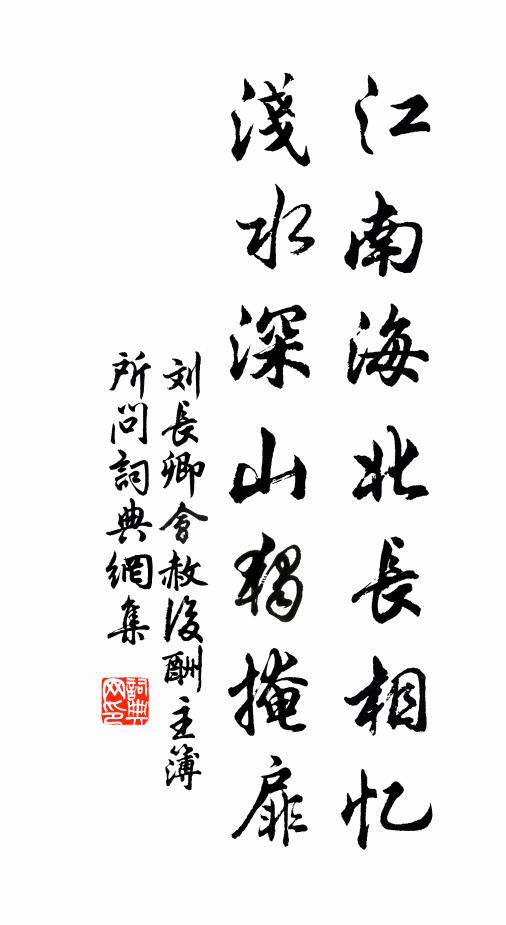 江南海北長相忆
淺水深山獨掩扉
刘長卿會赦後酬主簿
所問詞典網集
詞典网印